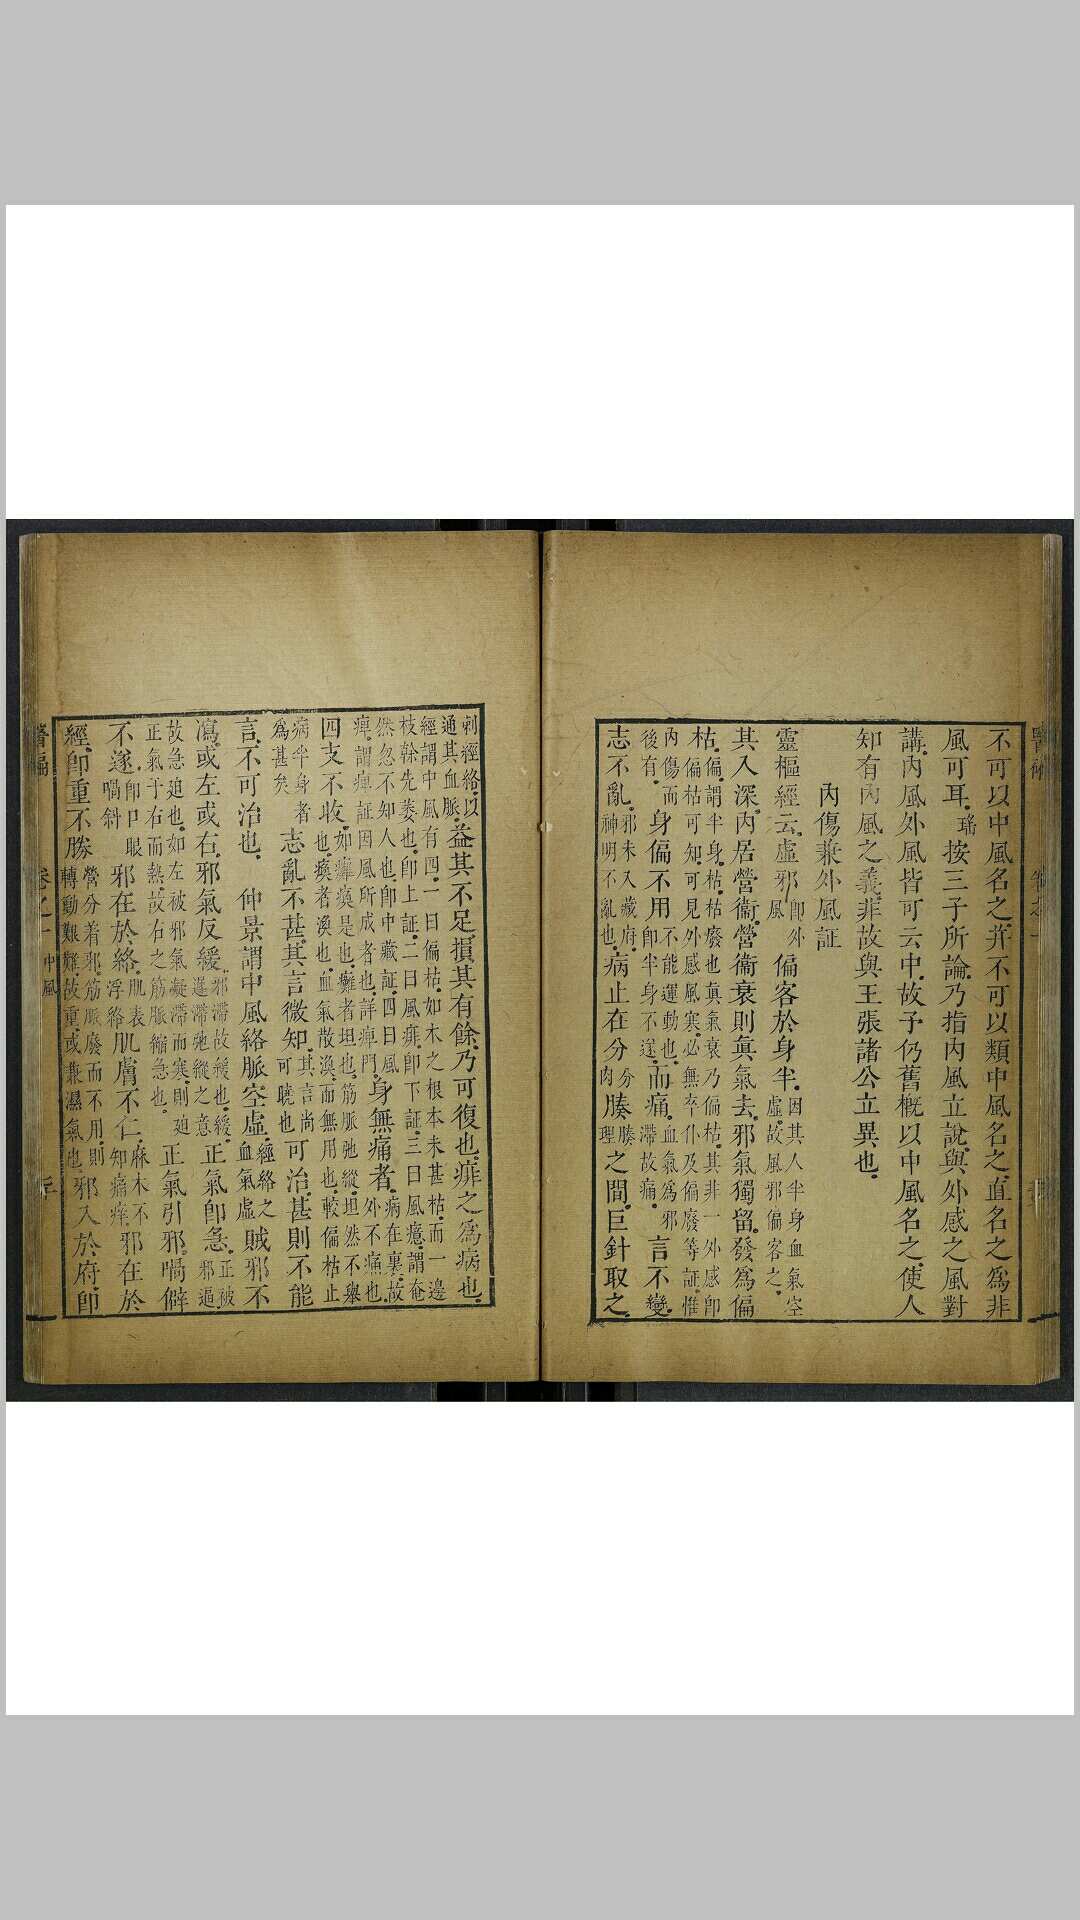 不可以中風名之并不可以類中風名之直名之為非
風可耳瑤按三子所論乃指內風立說與外感之風對
講內風外風皆可云中故予仍舊概以中風名之使人
知有內風之義非故與王張諸公立異也
內傷兼外風証
靈樞經云虛邪即外風偏客於身半因其人半身血氣空虛故風邪偏客之
其入深內居營衞營衞衰則真氣去邪氣獨留發為偏
枯偏謂半身枯枯廢也真氣衰乃偏枯其非一外感即枯偏枯可知可見外感風寒必無卒仆及偏廢等証惟
內傷而後有身偏不用即半身不遂而痛血氣為邪滯故痛言不變
志不亂邪未入藏府神明不亂也病止在分肉腠理之間巨針取之
刺經絡以通其血脈益其不足損其有餘乃可復也痱之為病也
經謂中風有四一曰偏枯如木之根本未甚枯而一邊枝榦先萎也即上証二曰風痱即下証三曰風癔謂奄
然忽不知人也即中藏証四曰風痺謂痺証因風所成者也詳痺門身無痛者病在裏故外不痛也
四支不收如癱瘓是也癱者坦也筋脈弛縱坦然不舉也瘓者渙也血氣散渙而無用也較偏枯止
病半身者為甚矣志亂不甚其言微知其言尚可曉也可治甚則不能
言不可治也　仲景謂中風絡脈空虛經絡之血氣虛賊邪不
瀉或左或右邪氣反緩邪滯故緩也緩遲滯弛縱之意正氣即急正被邪逼
故急廹也如左被邪氣凝滯而寒則廹正氣于右而熱故右之筋脈縮急也正氣引邪喎僻
不遂即口眼喎斜邪在於絡肌表浮絡肌膚不仁麻木不知痛癢邪在於
經即重不勝營分着邪筋脈廢而不用則轉動艱難故重或兼濕氣也邪入於府即
醫碥　卷之一　中風